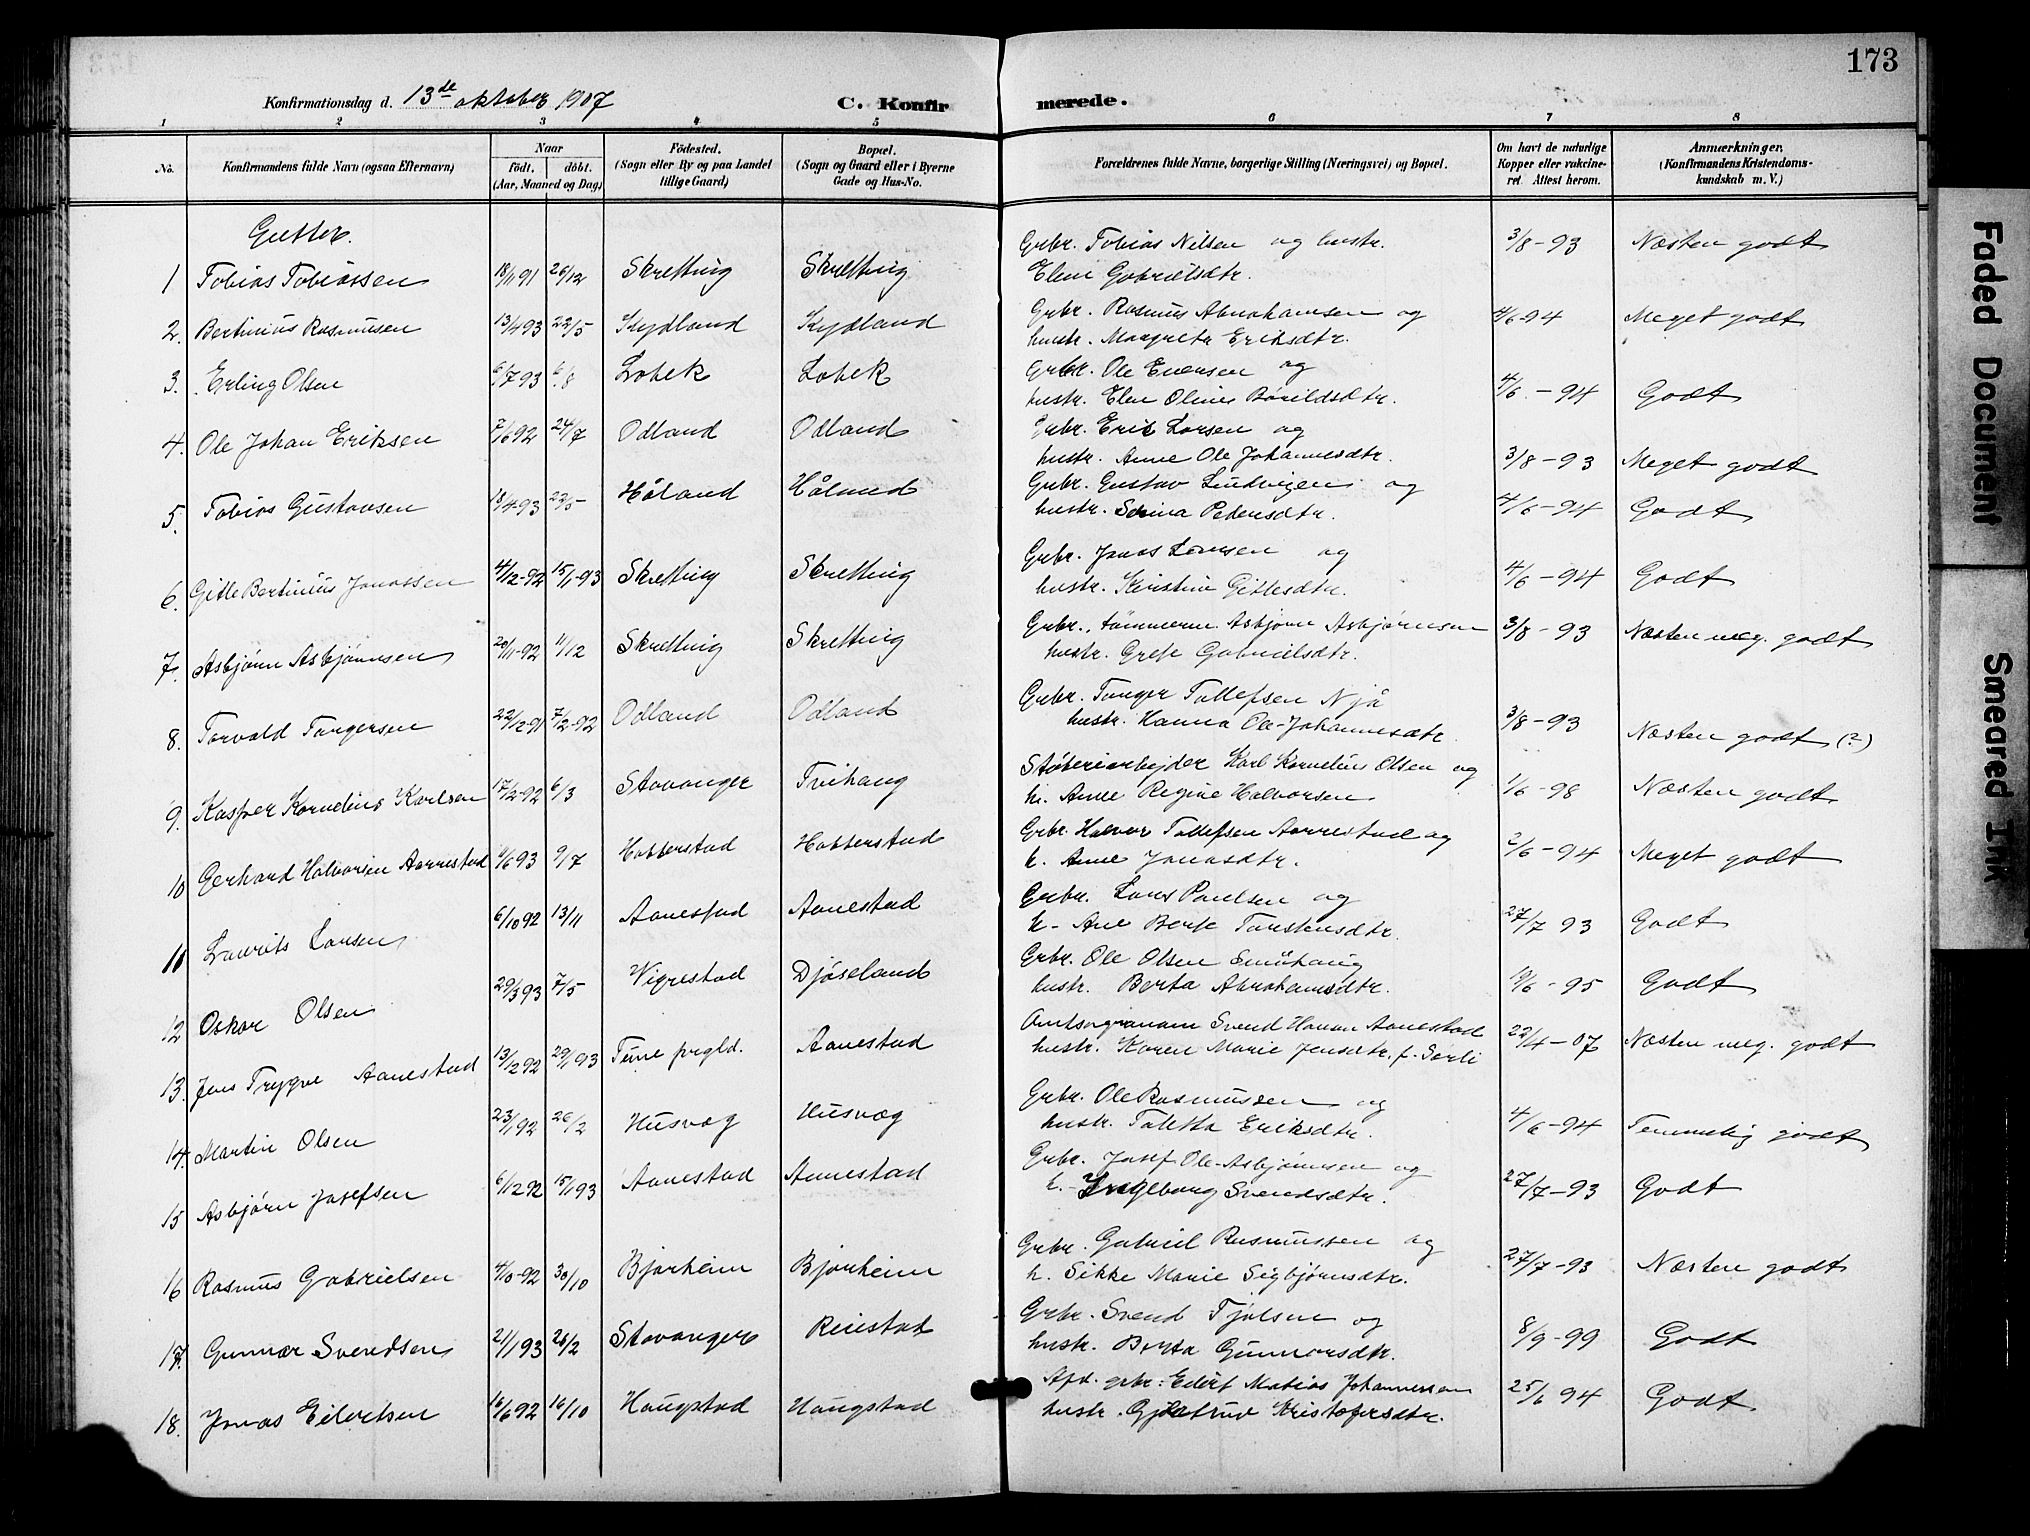 173
Konfirmationsdag d. 13de oktober 1907 C. Konfirmerede.
1 2 3 4 5 6 7 8
No. Konfirmandens fulde Navn (ogsaa Efternavn) Naar født. døbt. (Aar, Maaned og Dag) Födested. (Sogn eller By og paa Landet tillige Gaard) Bopæl. (Sogn og Gaard eller i Byerne Gade og Hus-No. Forældrenes fulde Navne, borgerlige Stilling (Næringsvei) og Bopæl. Om havt de naturlige Kopper eller vakcineret. Attest herom. Anmærkninger. (Konfirmandens Kristendomskundskab m. V.)
Gutter.
1 Tobias Tobiassen 18/11 91 26/12 Skretting Skretting Grbr. Tobias Nilsen og hustr. 3/8-93 Næsten godt
Elen Gabrielsdtr.
2. Bertinius Rasmusen 13/4 93 22/5 Kydland Kydland Grbr. Rasmus Abrahamsen og 4/6-94 Meget godt
hustr. Margreta Eriksdtr.
3. Erling Olsen 6/7 93 6/8 Lobek Lobek Grbr. Ole Evensen og
hustr. Elen Oline Bårildsdtr. 4/6-94 Godt
4. Ole Johan Eriksen 7/6 92 24/7 Odland Odland Grbr. Erik Larsen og
hustr. Anne Ole Johannesdtr. 3/8-93 Meget godt
5. Tobias Gustavsen 18/4-93 22/5 Håland Håland Grbr. Gustav Ludvigsen og
hustr. Serina Pedersdtr. 4/6-94 Godt
6. Gitle Bertinius Jonassen 4/12-92 15/1-93 Skretting Skretting Grbr. Jonas Larsen og
hustr. Kristine Gitlesdtr. 4/6-94 Godt
7. Asbjørn Asbjørnsen 20/11-92 11/12 Skretting Skretting Grbr., tömmerm. Asbjørn Asbjørnsen 3/8-93 Næsten meg. godt
hustr. Grete Gabrielsdtr.
8. Torvald Torgersen 22/12-91 7/2-92 Odland Odland Grbr. Torger Tollefsen Njå
hustr. Hanna Ole-Johannesdtr. 3/8-93 Næsten godt (?)
9. Kasper Kornelius Karlsen 17/2-92 6/3 Stavanger Tvihaug Støberiarbejder Karl Kornelius Olsen og
h. Anne Regine Halvorsen 1/6-98 Næsten godt
10 Gerhard Halvorsen Aarrestad 93 9/7 Hobberstad Hobberstad Grbr. Halvor Tollefsen Aarrestad og
h. Anne Jonasdtr. 2/6-94 Meget godt
11 Laurits Larsen 6/10 92 13/11 Aanestad Aanestad Grbr. Lars Paulsen og
h. Ane Berte Torstensdtr. 27/7 93 Godt
12 Oskar Olsen 29/3 93 7/5 Vigrestad Djåseland Grbr. Ole Olsen Småhaug
hustr. Berta Abrahamsdtr. 10/6-95 Godt
13. Jens Trygve Aanestad 13/12 92 29/1 93 Time prgld. Aanestad Amtsagronom Svend Hansen Aanestad
hustr. Karen Marie Jensdtr. f. Sørli 22/4-07 Næsten meg. godt
14. Martin Olsen 23/1 92 26/2 Husvæg Husvæg Grbr. Ole Rasmussen og
hustr. Taletta Eriksdtr. 4/6-94 Temmelig godt
15 Asbjørn Josefsen 6/12 92 15/1 93 Aanestad Aanestad Grbr. Josef Ole-Asbjørnsen og
h. Ingeborg Svendsdtr. 27/7-93 Godt
16 Rasmus Gabrielsen 4/10-92 30/10 Bjorheim Bjorheim Grbr. Gabriel Rasmussen og
h. Sikke Marie Sigbjørnsdtr. 27/7-93 Næsten godt
17. Gunnar Svendsen 21/1 93 26/2 Stavanger Reiestad Grbr. Svend Tjølsen og
hustr. Berta Gunnarsdtr. 8/9-99 Godt
18. Jonas Eilertsen 16/6 92 16/10 Haugstad Haugstad Afd. grbr. Eilert Matias Johannessen
hustr. Gjertrud Kristofersdtr. 25/6 94 Godt
Faded Document
Smeared Ink